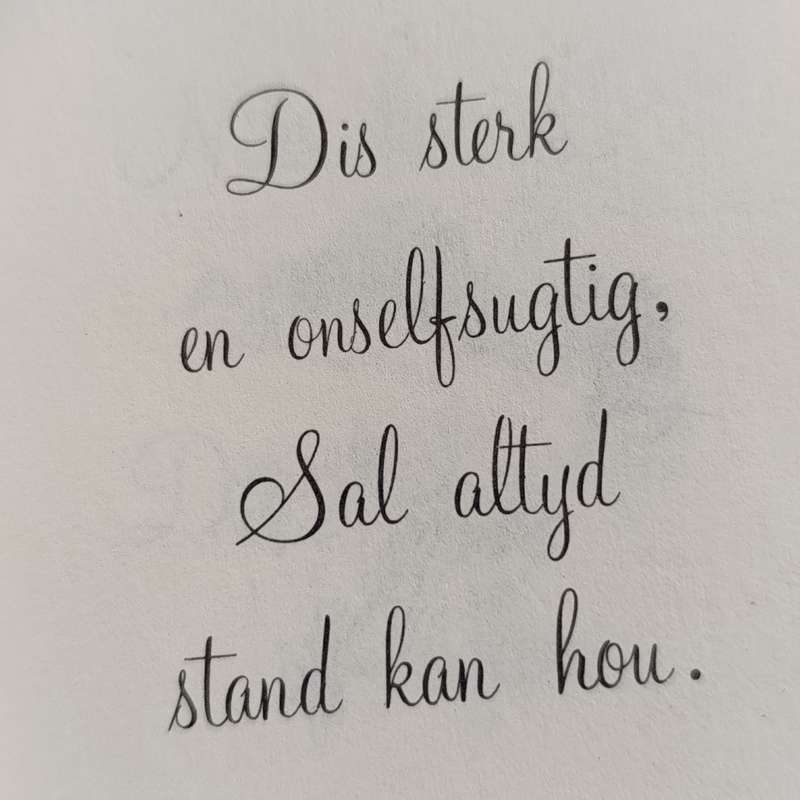 Dis sterk
en onselfsugtig,
Sal altyd
stand kan hou.